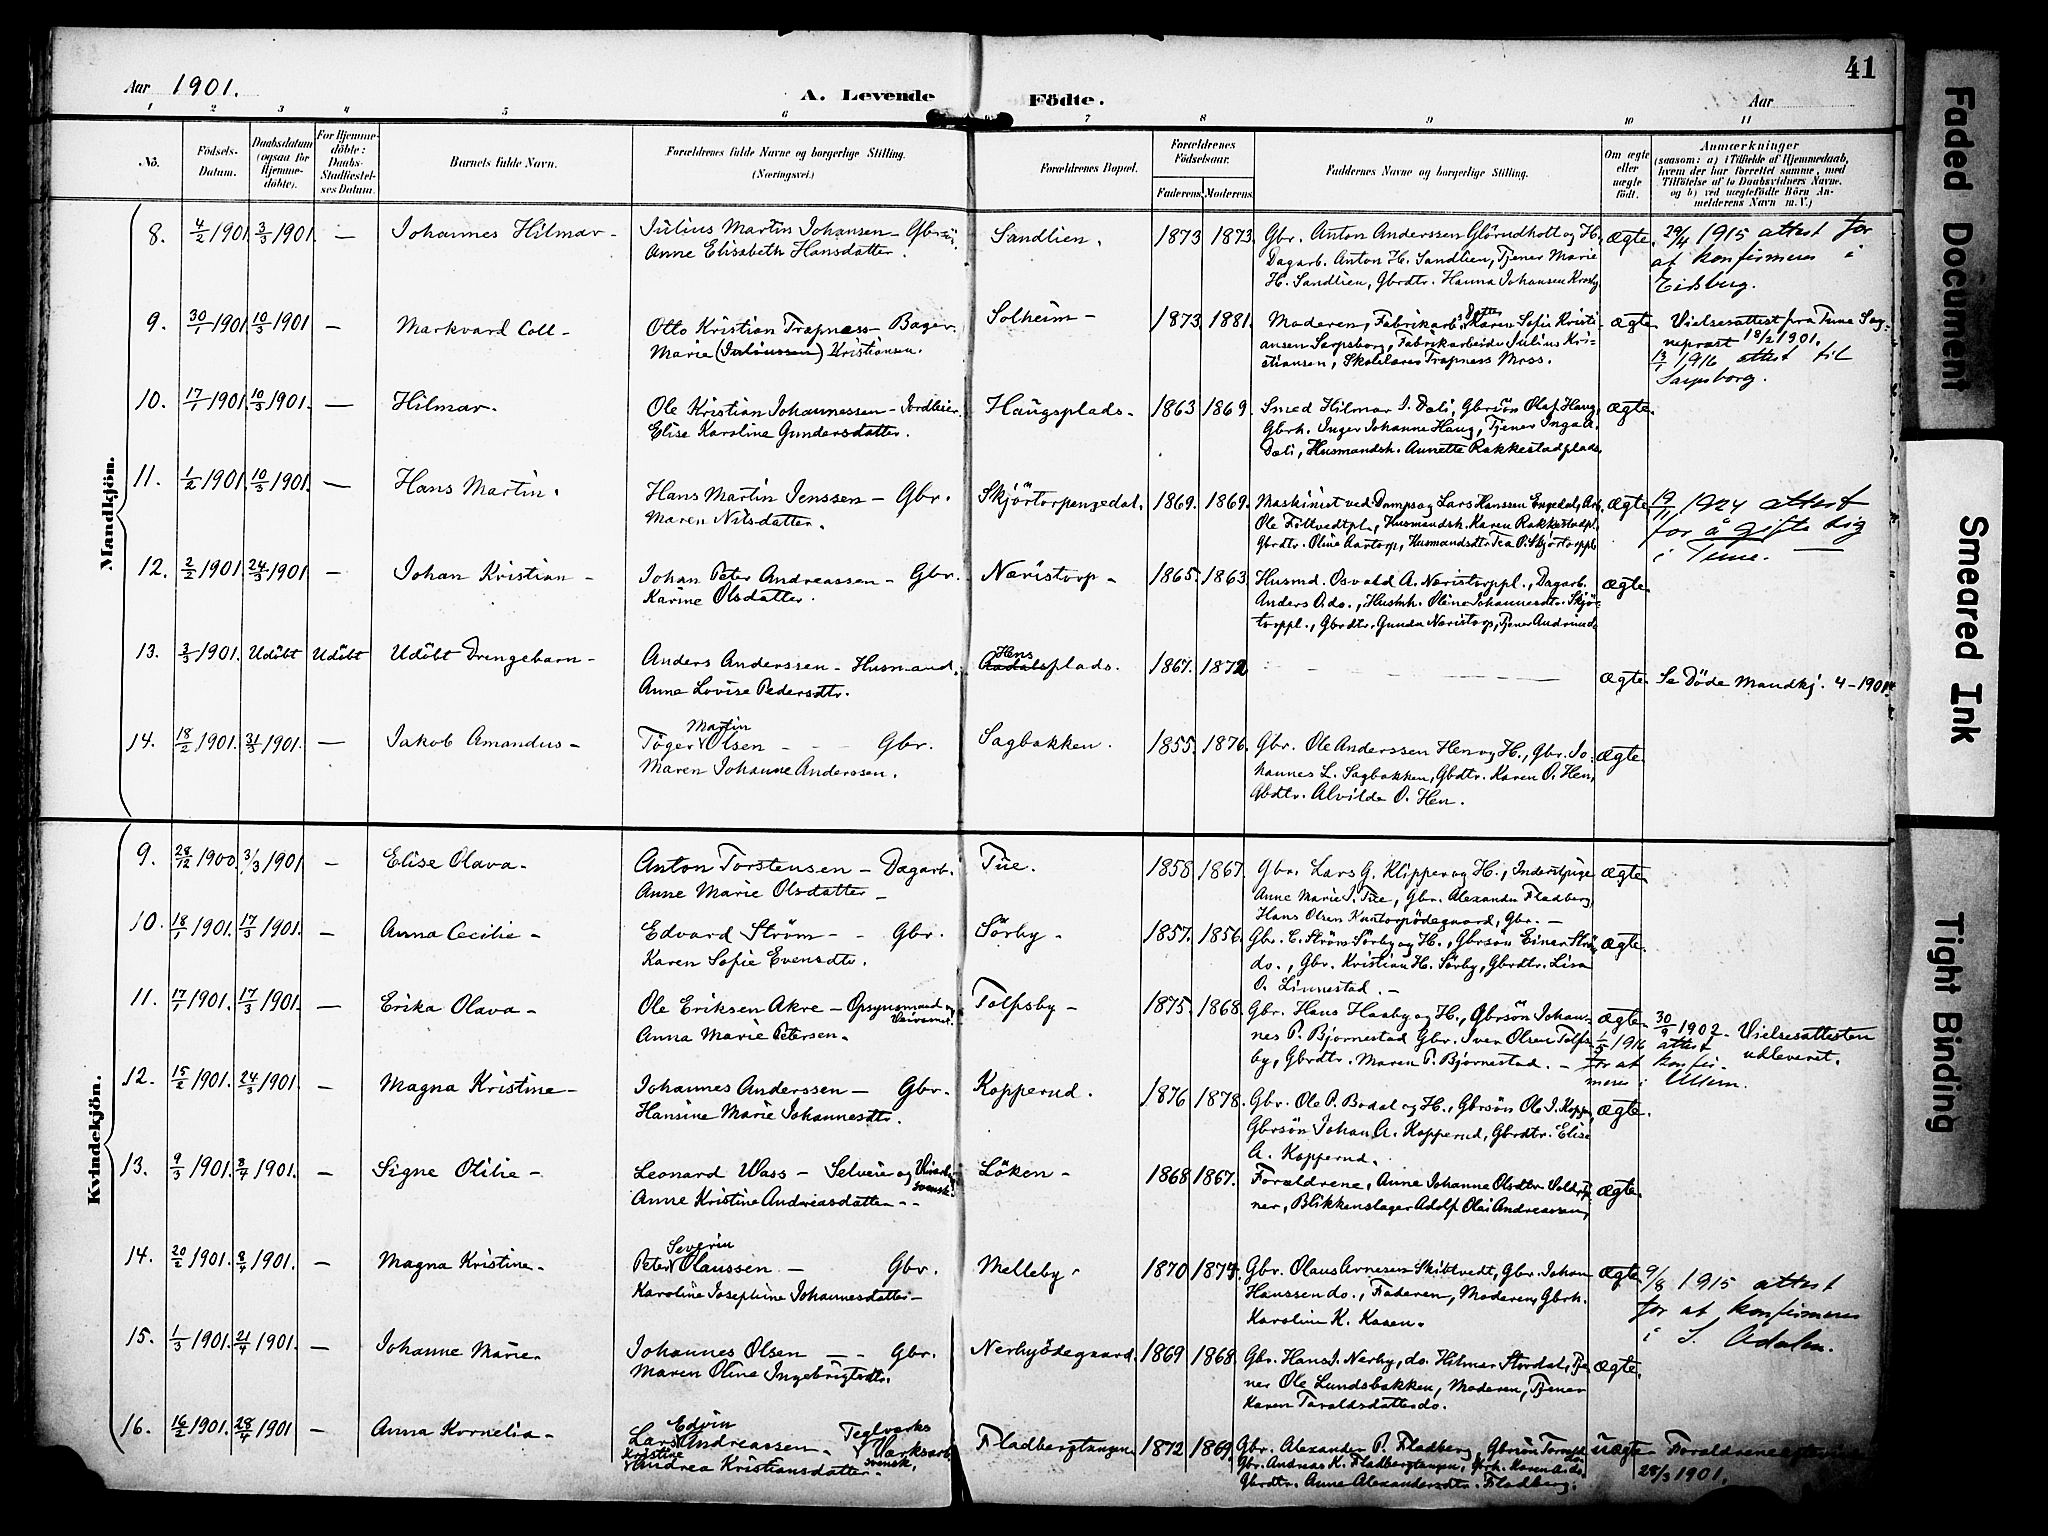 41
Aar 1901.
A. Levende Födte.
Aar
1 2 3 4 5 6 7 8 9 10 11
No.
Födsels-Datum.
Daabsdatum (ogsaa for Hjemmedöbte).
For Hjemmedöbte: Daabs-Stadfæstelses Datum.
Barnets fulde Navn.
Forældrenes fulde Navne og borgerlige Stilling. (Næringsvei.)
Forældrenes Bopæl.
Forældrenes Födselsaar.
Faderens. Moderens.
Faddernes Navne og borgerlige Stilling.
Om ægte eller uægte födt.
Anmærkninger
(saasom: a) i Tilfælde af Hjemmedaab,
hvem der har forrettet samme, med
Tilföielse af to Daabsvidners Navne,
og b) ved uægtefödte Börn Anmelderens Navn m. V.)
Mandkjön.
8. 4/2 1901 3/3 1901. — Johannes Hilmar — Julius Martin Johansen — Gbrsö. Sandlien. 1873 1873. Gbr. Anton Anderssen Glörudholt og H., ægte. 29/4 1915 attest for
Anne Elisabeth Hansdatter. Dagarb. Anton H. Sandlien, Tjener Marie at konfirmeres i
H. Sandlien, Gbrdtr. Hanna Johansen Krosby Eidsberg.
9. 30/1 1901 10/3 1901 — Markvard Coll — Otto Kristian Trapness — Bager. Solheim — 1873 1881. Moderen, Fabrikarb.s Datter Karen Sofie Kristi- ægte. Vielsesattest fra Tune Sog-
Marie (Juliussen) Kristiansen. ansen Sarpsborg, Fabrikarbeider Julius Kri- neprest 18/2 1901.
stiansen, Skolelærer Trapness Moss. 13/1 1916 attest til
Sarpsborg.
10. 17/1 1901 10/3 1901. — Hilmar. Ole Kristian Johannessen — Jordleier. Haugsplads. 1863 1869. Smed Hilmar J. Dæli, Gbrsön Olaf Haug, ægte.
Elise Karoline Gundersdatter. Gbrk. Inger Johanne Haug, Tjener Inga
Dæli, Husmandsk. Annette Rakkestadplads
11. 1/2 1901 10/3 1901. — Hans Martin. Hans Martin Jenssen — Gbr. Skjörtorpengedal. 1869. 1869. Maskinist ved Dampsag Lars Hanssen Engedal, Arb. ægte. 19/11 1924 attest
Maren Nilsdatter. Ole Föltvedtpl., Husmandsk. Karen Rakkestadpl. for å gifte sig
Gbrdtr. Oline Aartorp, Husmandsdtr Tea O. Skjörtorppl. i Tune. —
12. 2/2 1901 24/3 1901. — Johan Kristian — Johan Peter Andreassen — Gbr. Næristorp — 1865. 1863. Husmd. Osvald A. Næristorppl., Dagarb. ægte.
Karine Olsdatter. Anders O. do., Husmk. Oline Johannesdtr. Skjö-
torppl., Gbrdtr. Gunda Næristorp, Tjener
13. 3/3 1901. Udöbt Udöbt Udöbt Drengebarn — Anders Anderssen — Husmand. Hensplads. 1867. 1872 — ægte. Se Döde Mandkj. 4 - 1901.
Anne Lovise Pedersdtr.
14. 18/2 1901. 31/3 1901. — Jakob Amandus — Töger Martin Olsen — Gbr. Sagbakken. 1855. 1876. Gbr. Ole Anderssen Hen og H., Gbr. Jo- ægte.
Maren Johanne Anderssen. hannes L. Sagbakken, Gbdtr. Karen O. Hen,
Gbdtr. Alvilde O. Hen.
Kvindekjön.
9. 28/12 1900. 31/3 1901 — Elise Olava — Anton Torstensen — Dagarb. Tue. 1858 1867. Gbr. Lars G. Klipper og H., Inderstpige ægte.
Anne Marie Olsdatter — Anne Marie J. Tue, Gbr. Alexander Fladberg,
Hans Olsen Kuntorpödegaard, Gbr. —
10. 18/1 1901. 17/3 1901. — Anna Cecilie — Edvard Ström — Gbr. Sörby — 1857. 1856. Gbr. C. Ström Sörby og H., Gbrsön Einar Ström ægte.
Karen Sofie Evensdtr. do., Gbr. Kristian H. Sörby, Gbrdtr. Lisa
O. Linnestad. —
11. 17/1 1901. 17/3 1901. — Erika Olava — Ole Eriksen Akre — Opsynsmand og Tolfsby — 1875. 1868. Gbr. Hans Haaby og H., Gbrsön Johan- ægte. 30/9 1902 — Vielsesattesten
Anna Marie Petersen. nes P. Björnestad Gbr. Iver Olsen Tolfs- 1/5 1916 attest udleveret.
by, Gbrdtr. Maren P. Björnestad. — for at konfir-
meres i Ullern.
12. 15/2 1901. 24/3 1901 — Magna Kristine — Johannes Anderssen — Gbr. Kopperud. 1876 1878. Gbr. Ole P. Bodal og H., Gbrsön Ole J. Kopper, ægte.
Hansine Marie Johannesdtr. Gbrsön Johan A. Kopperud, Gbrdtr. Elise
A. Kopperud.
13. 9/3 1901. 8/4 1901. — Signe Otilie — Leonard Wass — Selveier og svensk. Löken — 1868 1867. Forældrene, Anne Johanne Olsdtr ægte.
Anne Kristine Andreasdatter — ner, Blikkenslager Adolf Olai Andreassen,
14. 20/2 1901. 8/4 1901. — Magna Kristine. Peter Severin Olaussen — Gbr. Melleby. 1870 1874. Gbr. Olaus Arnesen Skibtvedt, Gbr. Johan ægte. 9/8 1915 attest
Karoline Josephine Johannesdatter — Hanssen do., Faderen, Moderen, Gbrk. for at konfirmeres
Karoline K. Kasen. i S. Odalen.
15. 1/3 1901. 21/4 1901. — Johanne Marie. Johannes Olsen — Gbr. Nerbyödegaard. 1869 1868. Gbr. Hans J. Nerby, do. Hilmar Stordal, Tje- ægte.
Maren Oline Ingebrigtsdtr. ner Ole Lundsbakken, Moderen, Tjener
Karen Taraldsdatter do.
16. 16/2 1901. 28/4 1901 — Anna Kornelia — Lars Edvin Andreassen. Teglverks svensk. Fladbergtangen 1872 1869. Gbr. Alexander P. Fladberg, Gbrsön uægte. Forældrene
Kristine Andrea Kristiansdatter. Gbr. Andreas K. Fladbergtangen, Gbrk. Karen do. 28/3 1901.
Gbrdtr. Anne Alexandersdtr. Fladberg.
Faded Document
Smeared Ink
Tight Binding